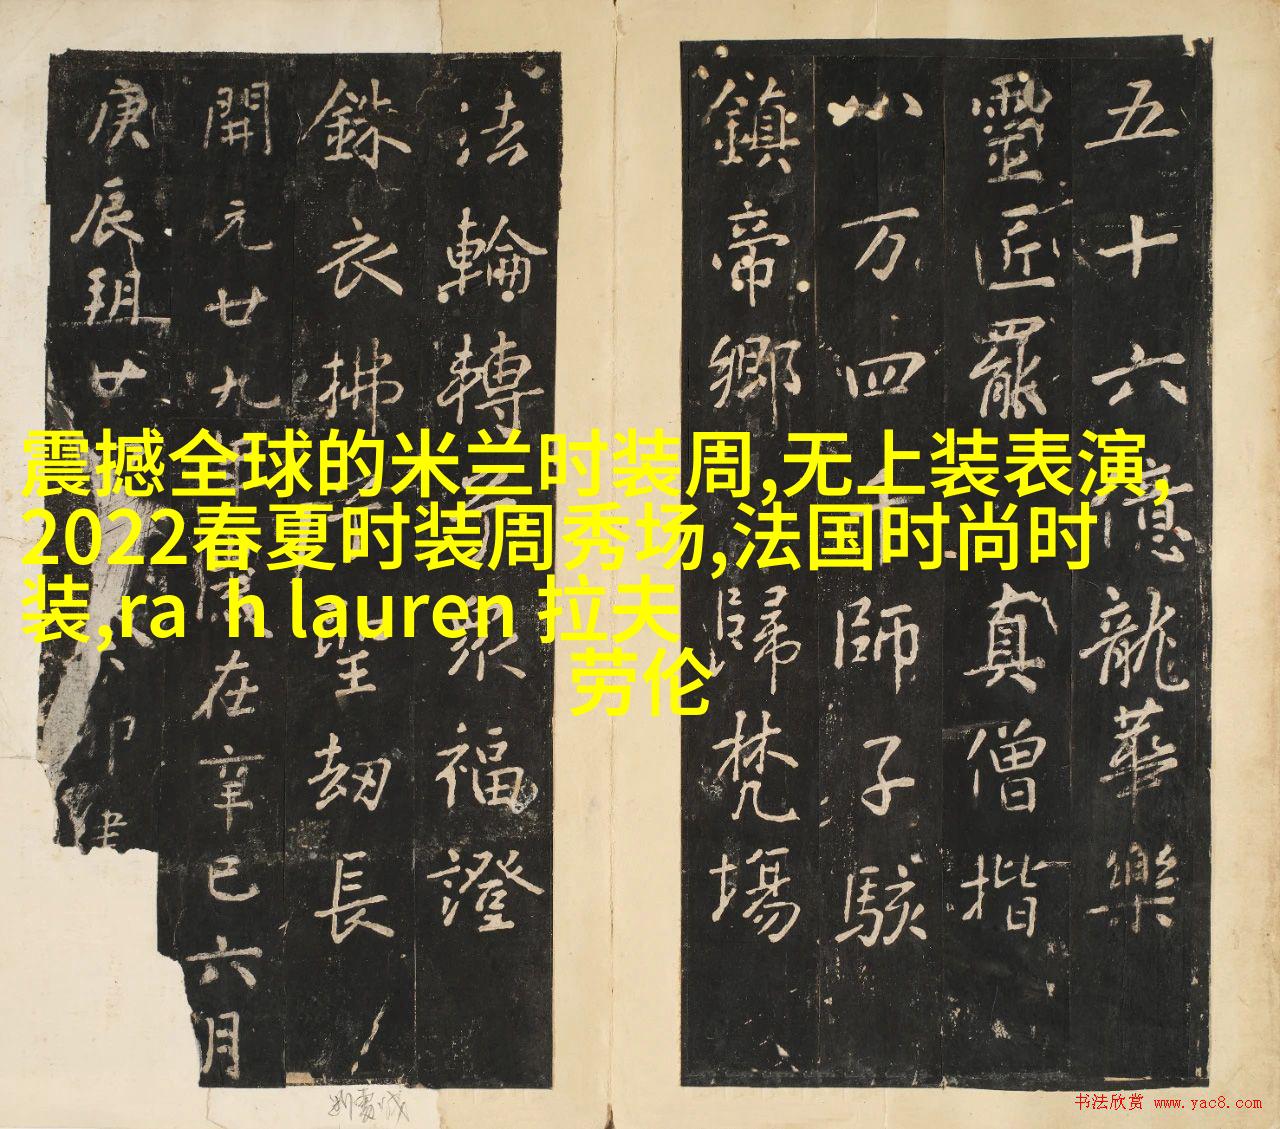 五十六億龍華樂
靈匠罷真僧揩
八万四千師子駭
鎮帝鄉歸梵場
法輪轉眾福澄
銖衣拂聖劫長
開元廿九在辛巳六月
庚辰玥廿卯建
震撼全球的米兰时装周,无上装表演,
2022春夏时装周秀场,法国时尚时
装,ra h lauren 拉夫
劳伦
书法欣赏 www.yac8.com